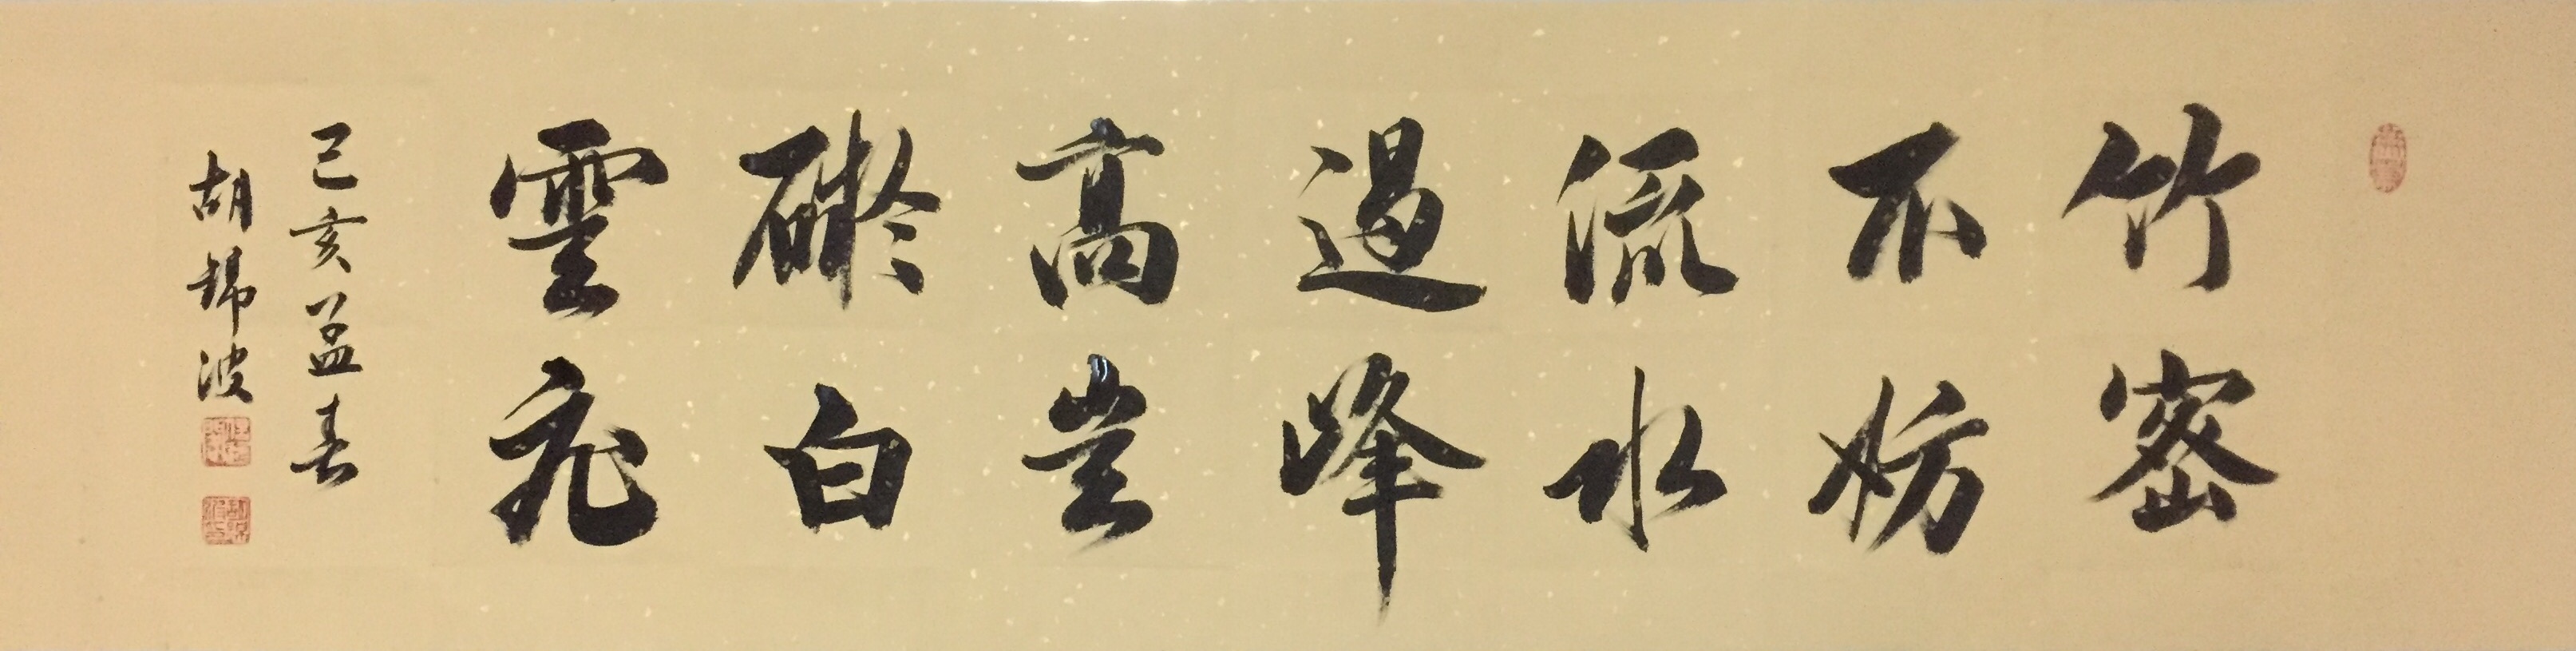 竹密
不妨
流水
過峰
高豈
礙白
雲飛
己亥孟春
胡錦波